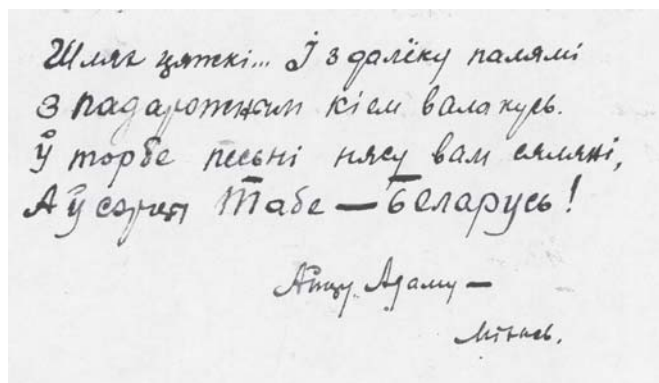 Шлях цяжкі... І з далёку палямі
З падарожным кіем валакусь.
Ў торбе песьні нясу вам сяляні,
А ў сэрцы Табе — Беларусь!
Айцу Адаму —
Міхась.